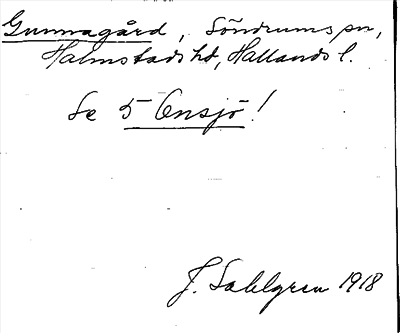 Gunnagård, Söndrums sn,
Halmstads hd, Hallands l.
Se 5 Ensjö!
J. Sahlgren 1918